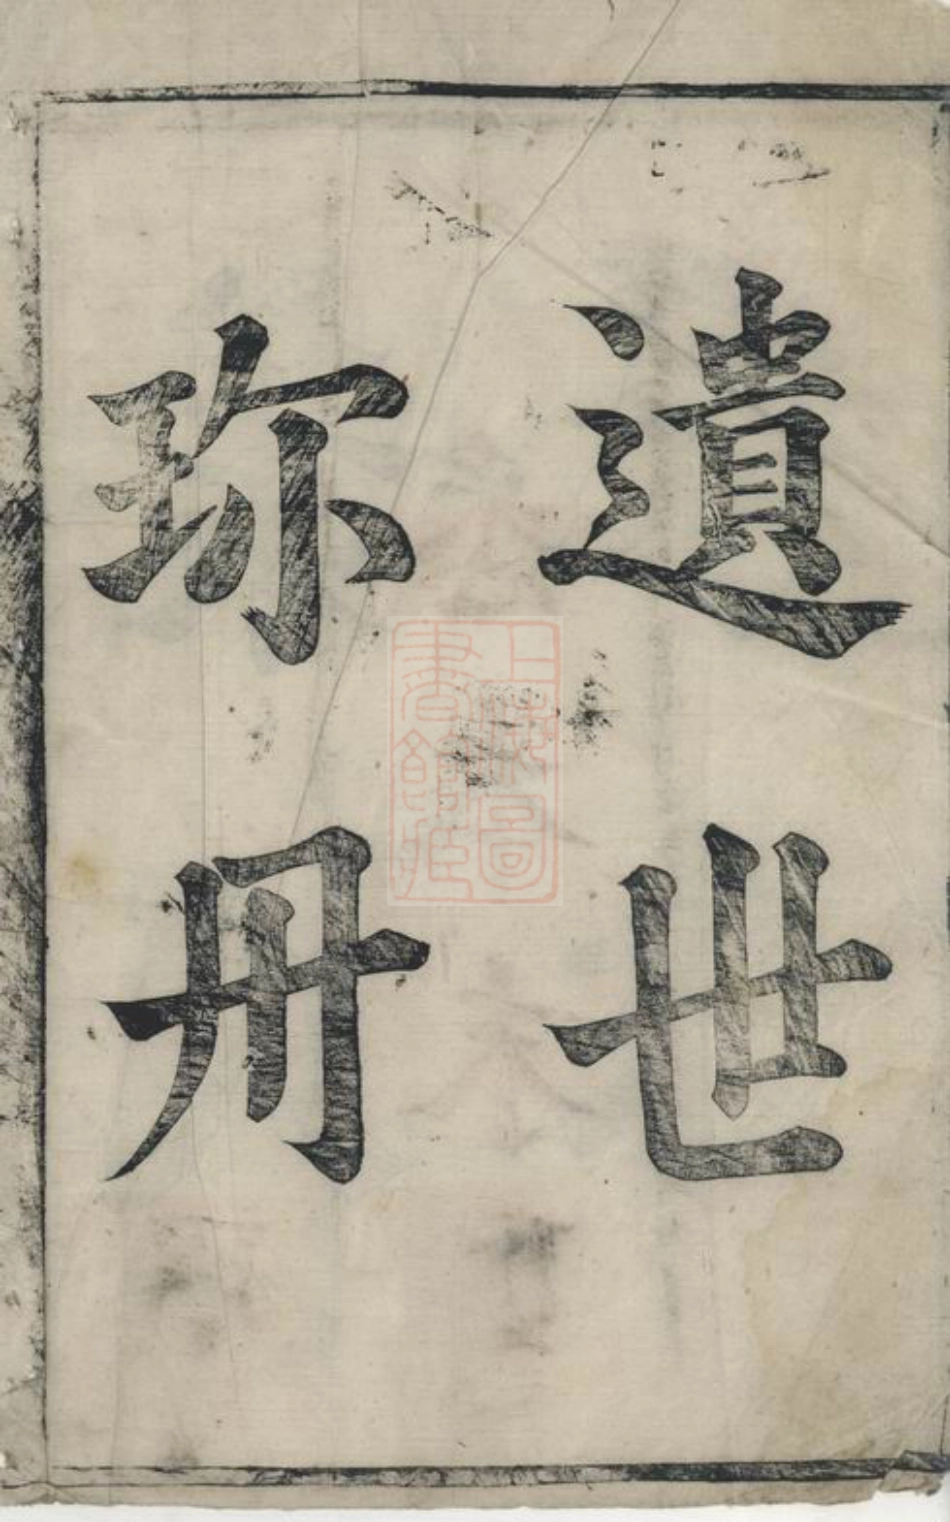 遺世
珎册
上海圖
書館藏